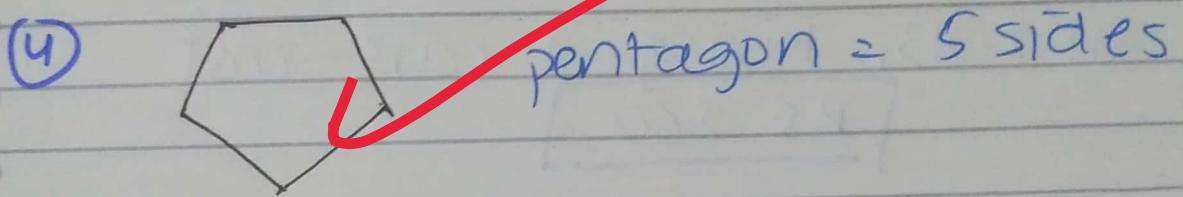 4 pentagon = 5 sides